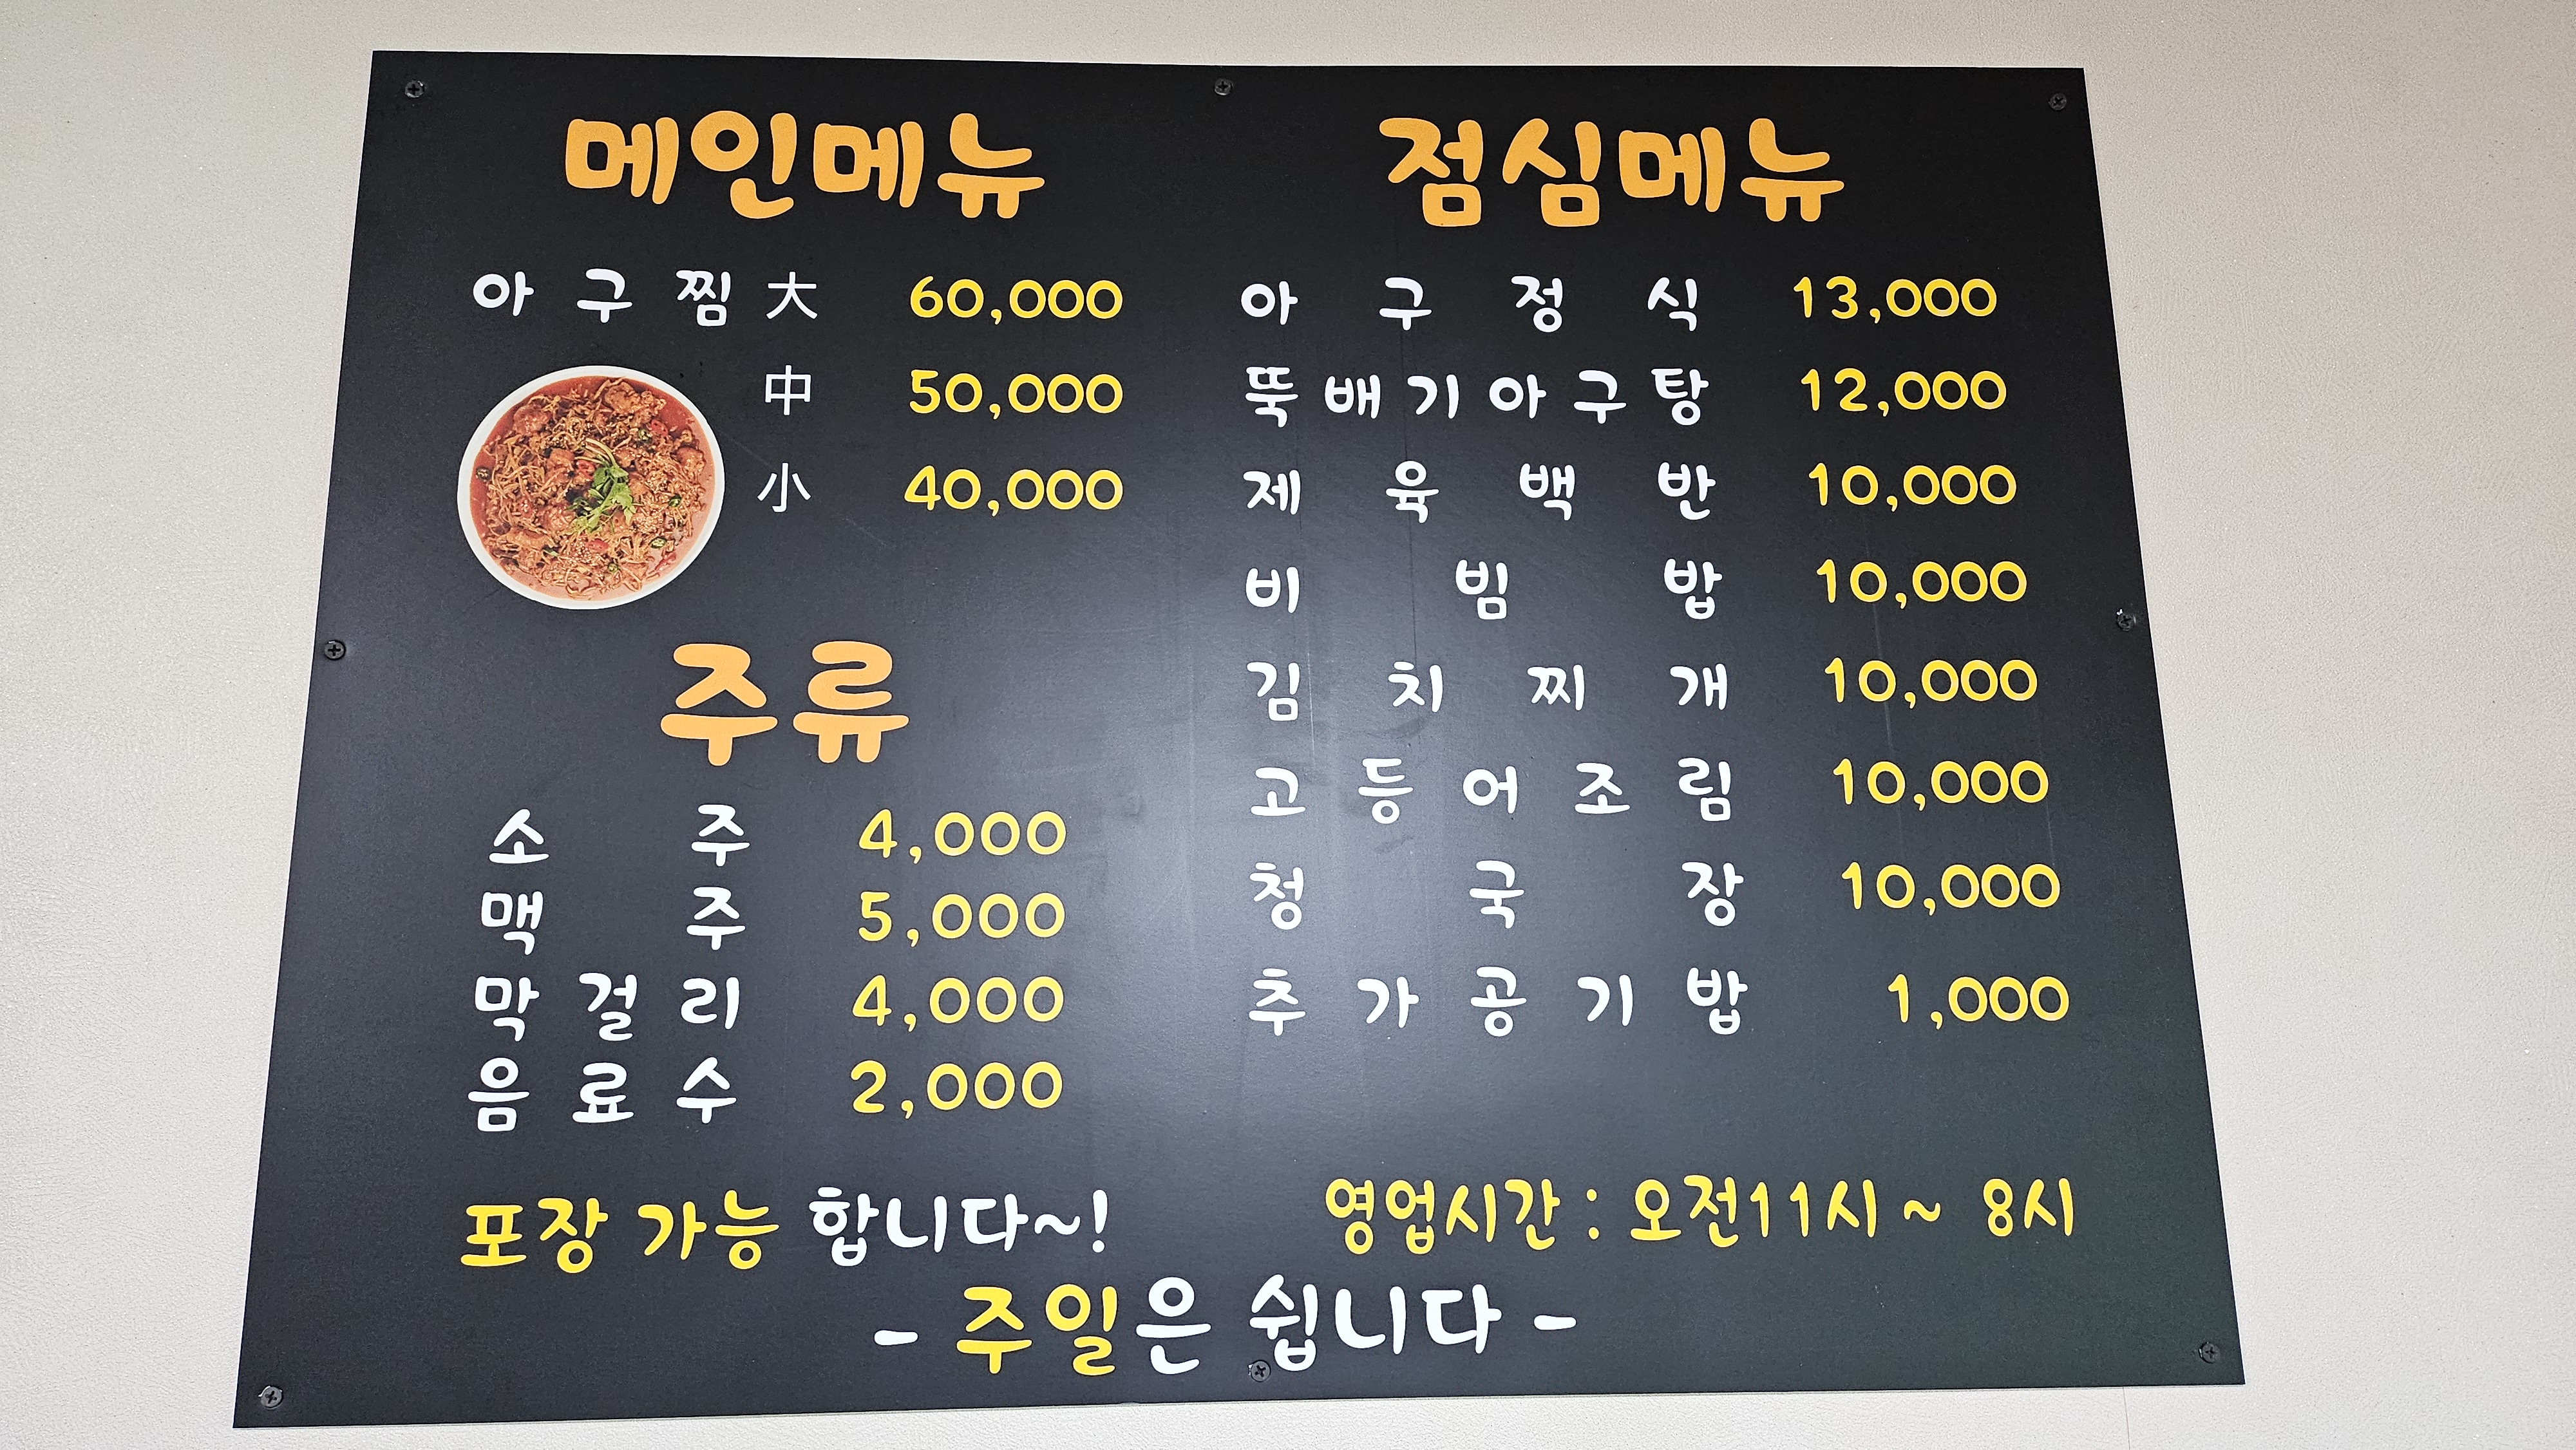 메인메뉴
아구찜 大 60,000
中 50,000
小 40,000
주류
소주 4,000
맥주 5,000
막걸리 4,000
음료수 2,000
포장 가능 합니다~!
점심메뉴
아구정식 13,000
뚝배기아구탕 12,000
제육백반 10,000
비빔밥 10,000
김치찌개 10,000
고등어조림 10,000
청국장 10,000
추가공기밥 1,000
영업시간 : 오전11시 ~ 8시
- 주일은 쉽니다 -